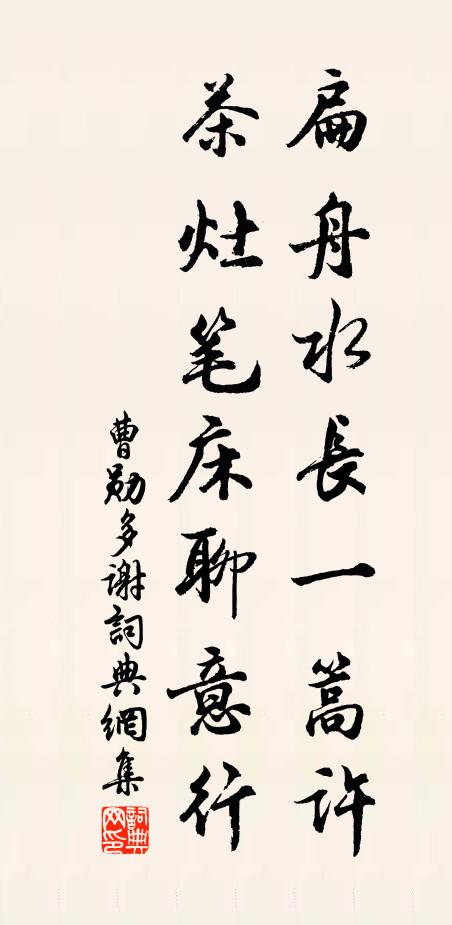 扁舟水長一篙许
茶灶笔床聊意行
曹勋多谢詞典網集
詞典网印